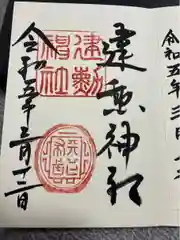 令和五年三月
建勲神社
建勲
神社
令和五年三月十二日